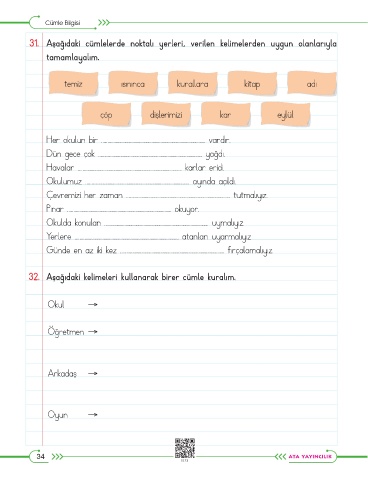 Cümle Bilgisi
31. Aşağıdaki cümlelerde noktalı yerleri, verilen kelimelerden uygun olanlarıyla
tamamlayalım.
temiz ısınınca kurallara kitap adı
çöp dişlerimizi kar eylül
Her okulun bir ........................................ vardır.
Dün gece çok ........................................ yağdı.
Havalar ........................................ karlar eridi.
Okulumuz ........................................ ayında açıldı.
Çevremizi her zaman ........................................ tutmalıyız.
Pınar ........................................ okuyor.
Okulda konulan ........................................ uymalıyız.
Yerlere ........................................ atanları uyarmalıyız.
Günde en az iki kez ........................................ fırçalamalıyız.
32. Aşağıdaki kelimeleri kullanarak birer cümle kuralım.
Okul →
Öğretmen →
Arkadaş →
Oyun →
34
ATA YAYINCILIK